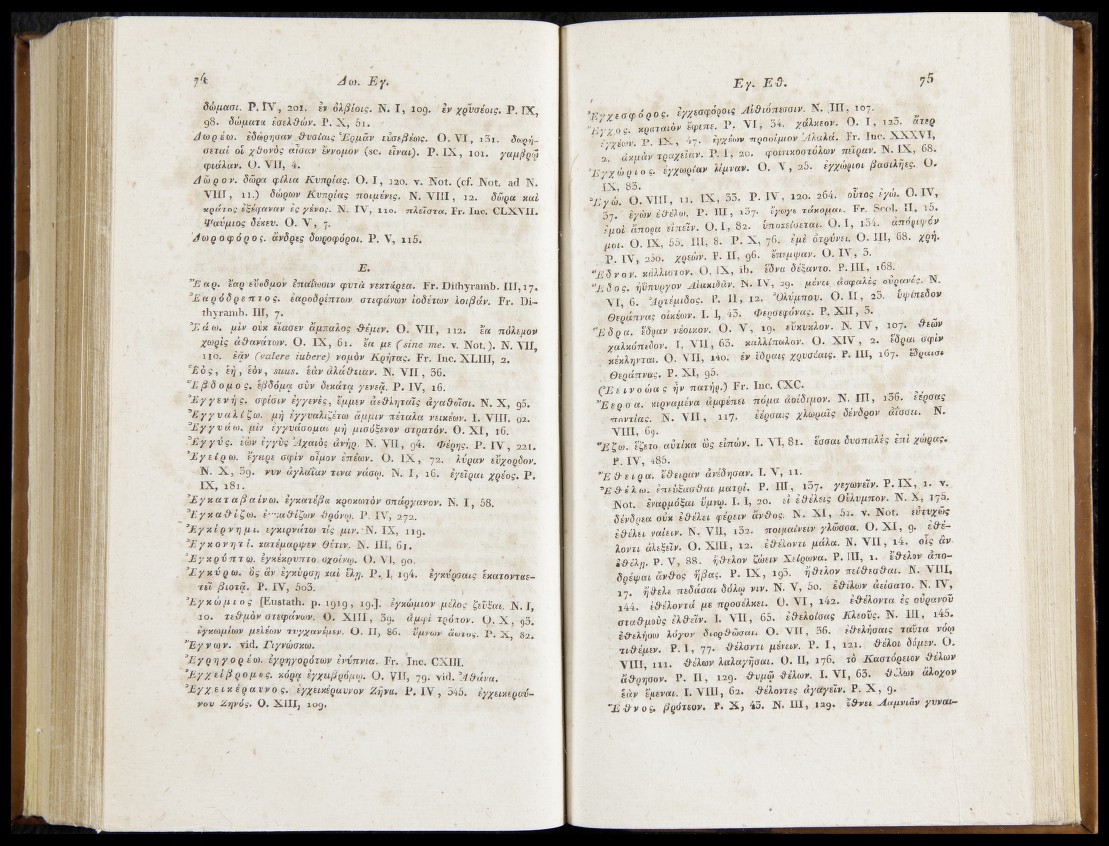 74 Δω. Εγ.
δώμασι. P. IV, 201. ἐν ὀλβίοις. N. I, 109. ἐν χρυσέοις. P. IX,
98. δώματα ἐσελθών. P. X, 51.
Δωρέω. ἐδώρησαν θυσίαις Ἑρμᾶν εὐσεβέως. O. VI, 131. δωρή-
σεται οἷ χθονὸς αἶσαν ἔννομον (sc. εἶναι). P. IX, 101. γαμβρῷ
φιάλαν. O. VII, 4.
Δῶρον. δῶρα φίλια Κυπρίας. O. I, 120. v. Not. (cf. Not. ad N.
VIII, 11.) δώρων Κυπρίας ποιμένες. N. VIII, 12. δῶρα καὶ
κράτος ἐξέφαναν ἐς γένος. N. IV, 110. πλεῖστα. Fr. Inc. CLXVII.
Ψαύμιος δέκευ. O. V, 7.
Δωροφόρος. ἄνδρες δωροφόροι. P. V, 115.
E.
Ἔαρ. ἔαρ εὔοδμον ἐπαΐωσιν φυτὰ νεκτάρεα. Fr. Dithyramb. III, 17.
Ἐαρόδρεπτος. ἐαροδρέπτων στεφάνων ἰοδέτων λοιβάν. Fr. Di-
thyramb. III, 7.
Ἐάω. μὶν οὐκ εἴασεν ἄμπαλος θέμεν. O. VII, 112. ἔα πόλεμον
χωρὶς ἀθανάτων. O. IX, 61. ἔα με (sine me. v. Not.). N. VII,
110. ἐᾷν (valere iubere) νομὸν Κρήτας. Fr. Inc. XLIII, 2.
Ἑός, ἑή, ἑόν, suus. ἑὰν ἀλάθειαν. N. VII, 36.
Ἕβδομος. ἑβδόμᾳ σὺν δεκάτᾳ γενεᾷ. P. IV, 16.
Ἐγγενής. σφίσιν ἐγγενὲς, ἔμμεν ἀεθληταῖς ἀγαθοῖσι. N. X, 95.
Ἐγγυαλίζω. μὴ ἐγγυαλιζέτω ἄμμιν πέταλα νεικέων. I. VIII, 92.
Ἐγγυάω. μὶν ἐγγυάσομαι μὴ μισόξενον στρατόν. O. XI, 16.
Ἐγγύς. ἐὼν ἐγγὺς Ἀχαιὸς ἀνήρ. N. VII, 94. Φέρης. P. IV, 221.
Ἐγείρω. ἔγειρε σφὶν οἶμον ἐπέων. O. IX, 72. λύραν εὔχορδον.
N. X, 39. νυν ἀγλαΐαν τινα νάσῳ. N. I, 16. ἐγεῖραι χρέος. P.
IX, 181.
Ἐγκαταβαίνω. ἐγκατέβα κροκωτὸν σπάργανον. N. I, 58.
Ἐγκαθίζω. ἐγκαθίζων θρόνῳ. P. IV, 272.
Ἐγκίρνημι. ἐγκιρνάτω τίς μιν. N. IX, 119.
Ἐγκονητί. κατέμαρψεν Θέτιν. N. III, 61.
Ἐγκρύπτω. ἐγκέκρυπτο σχοίνῳ. O. VI, 90.
Ἐγκύρω. ὃς ἂν ἐγκύρσῃ καὶ ἕλῃ. P. I, 194. ἐγκύρσαις ἑκατονταε-
τεῖ βιοτᾷ. P. IV, 503.
Ἐγκώμιος [Eustath. p. 1919, 19.]. ἐγκώμιον μέλος ζεῦξαι. N. I,
10. τεθμὸν στεφάνων. O. XIII, 39. ἀμφὶ τρόπον. O. X, 93.
ἐγκωμίων μελέων τυγχανέμεν. O. II, 86. ὕμνων ἄωτος. P. X, 82.
Ἔγνων. vid. Γιγνώσκω.
Ἐγρηγορέω. ἐγρηγορότων ἐνύπνια. Fr. Inc. CXIII.
Ἐγχειβρόμος. κόρᾳ ἐγχειβρόμῳ. O. VII, 79. vid. Ἀθάνα.
Ἐγχεικέραυνος. ἐγχεικέραυνον Ζῆνα. P. IV, 345. ἐγχεικεραύ-
νου Ζηνός. O. XIII, 109.
Εγ. Εθ. 75
Ἐγχεσφόρος. ἐγχεσφόροις Αἰθιόπεσσιν. N. III, 107.
Ἔγχος. κραταιὸν ἔφεπε. P. VI, 34. χάλκεον. O. I, 123. ἄτερ
ἐγχέων. P. IX, 47. ἐγχέων προοίμιον Ἀλαλά. Fr. Inc. XXXVI,
2. ἀκμὰν τραχεῖαν. P. I, 20. φοινικοστόλων πεῖραν. N. IX, 68.
Ἐγχώριος. ἐγχωρίαν λίμναν. O. V, 25. ἐγχώριοι βασιλῆες. O.
IX, 83.
Ἐγώ. O. VIII, 11. IX, 33. P. IV, 120. 264. οὗτος ἐγώ. O. IV,
37. ἐγὼν ἐθέλω. P. III, 137. ἔγωγε τάκομαι. Fr. Scol. II, 15.
ἐμοὶ ἄπορα εἰπεῖν. O. I, 82. ὑποκείσεται. O. I, 134. ἀπόριψόν
μοι. O. IX, 55. III, 8. P. X, 76. ἐμὲ ὀτρύνει. O. III, 68. χρή.
P. IV, 250. χρεών. F. II, 96. ἔπεμψαν. O. IV, 3.
Ἕδνον. κάλλιστον. O. IX, ib. ἕδνα δέξαντο. P. III, 168.
Ἕδος. ἠΰπυργον Αἰακιδᾶν. N. IV, 29. μένει ἀσφαλὲς οὐρανός. N.
VI, 6. Ἀρτέμιδος. P. II, 12. Ὀλύμπου. O. II, 23. ὑψίπεδον
Θεράπνας οἰκέων. I. I, 43. Φερσεφόνας. P. XII, 3.
Ἕδρα. ἕδραν νέοικον. O. V, 19. εὔκυκλον. N. IV, 107. θεῶν
χαλκόπεδον. I. VII, 63. καλλίπωλον. O. XIV, 2. ἕδραι σφιν
κέκληνται. O. VII, 140. ἐν ἕδραις χρυσέαις. P. III, 167. ἕδραισι
Θεράπνας. P. XI, 95.
(Ἐεινοώας ἦν πατήρ.) Fr. Inc. CXC.
Ἔερσα. κιρναμένα ἀμφέπει πόμα ἀοίδιμον. N. III, 136. ἐέρσας
ποντίας. N. VII, 117. ἐέρσαις χλωραῖς δένδρον ἀΐσσει. N.
VIII, 69.
Ἕζω. ἕζετο αὐτίκα ὣς εἰπών. I. VI, 81. ἕσσαι δυσπαλὲς ἐπὶ χώρας.
P. IV, 485.
Ἔθειρα. ἔθειραν ἀνέδησαν. I. V, 11.
Ἐθέλω. ἐπεύξασθαι ματρί. P. III, 137. γεγωνεῖν. P. IX, 1. v.
Not. ἐναρμόξαι ὕμνῳ. I. I, 20. εἰ ἐθέλεις Οὔλυμπον. N. X, 175.
δένδρεα οὐκ ἐθέλει φέρειν ἄνθος. N. XI, 52. v. Not. εὐτυχῶς
ἐθέλει ναίειν. N. VII, 132. ποιμαίνειν γλῶσσα. O. XI, 9. ἐθέ-
λοντι ἀλεξεῖν. O. XIII, 12. ἐθέλοντι μάλα. N. VII, 14. οἷς ἂν
ἐθέλῃ. P. V, 88. ἤθελον ζώειν Χείρωνα. P. III, 1. ἔθελον ἀπο-
δρέψαι ἄνθος ἥβας. P. IX, 193. ἤθελον πείθεσθαι. N. VIII,
17. ἤθελε πεδᾶσαι δόλῳ νιν. N. V, 50. ἐθέλων ἀείσατο. N. IV,
144. ἐθέλοντά με προσέλκει. O. VI, 142. ἐθέλοντα ἐς οὐρανοῦ
σταθμοὺς ἐλθεῖν. I. VII, 65. ἐθελοίσας Κλεοῦς. N. III, 145.
ἐθελήσω λόγον διορθῶσαι. O. VII, 36. ἐθελήσαις ταῦτα νόῳ
τιθέμεν. P. I, 77. θέλοντι μένειν. P. I, 121. θέλοι δόμεν. O.
VIII, 112. θέλων λαλαγῆσαι. O. II, 176. τὸ Καστόρειον θέλων
ἄθρησον. P. II, 129. θυμῷ θέλων. I. VI, 63. θέλων ἄλοχον
ἑὰν ἔμεναι. I. VIII, 62. θέλοντες ἀγαγεῖν. P. X, 9.
Ἔθνος. βρότεον. P. X, 43. N. III, 129. ἔθνει Λαμνιᾶν γυναι-